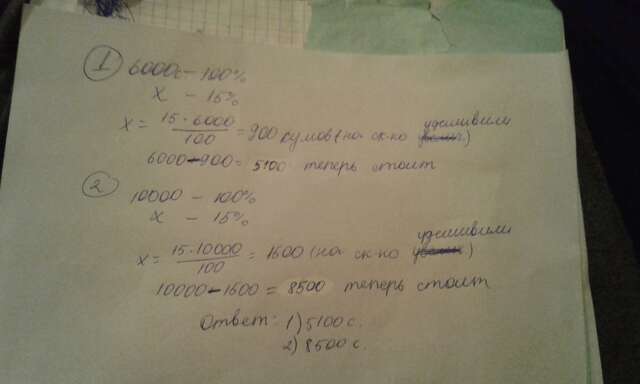 1 6000с - 100%
x - 15%
x = 15·6000/100 = 900 сумов (на ск-ко удешевили)
6000-900= 5100 теперь стоит
2
10000 - 100%
x - 15%
x = 15·10000/100 = 1500 (на ск-ко удешевили)
10000-1500 = 8500 теперь стоит
Ответ: 1) 5100 с.
2) 8500 с.